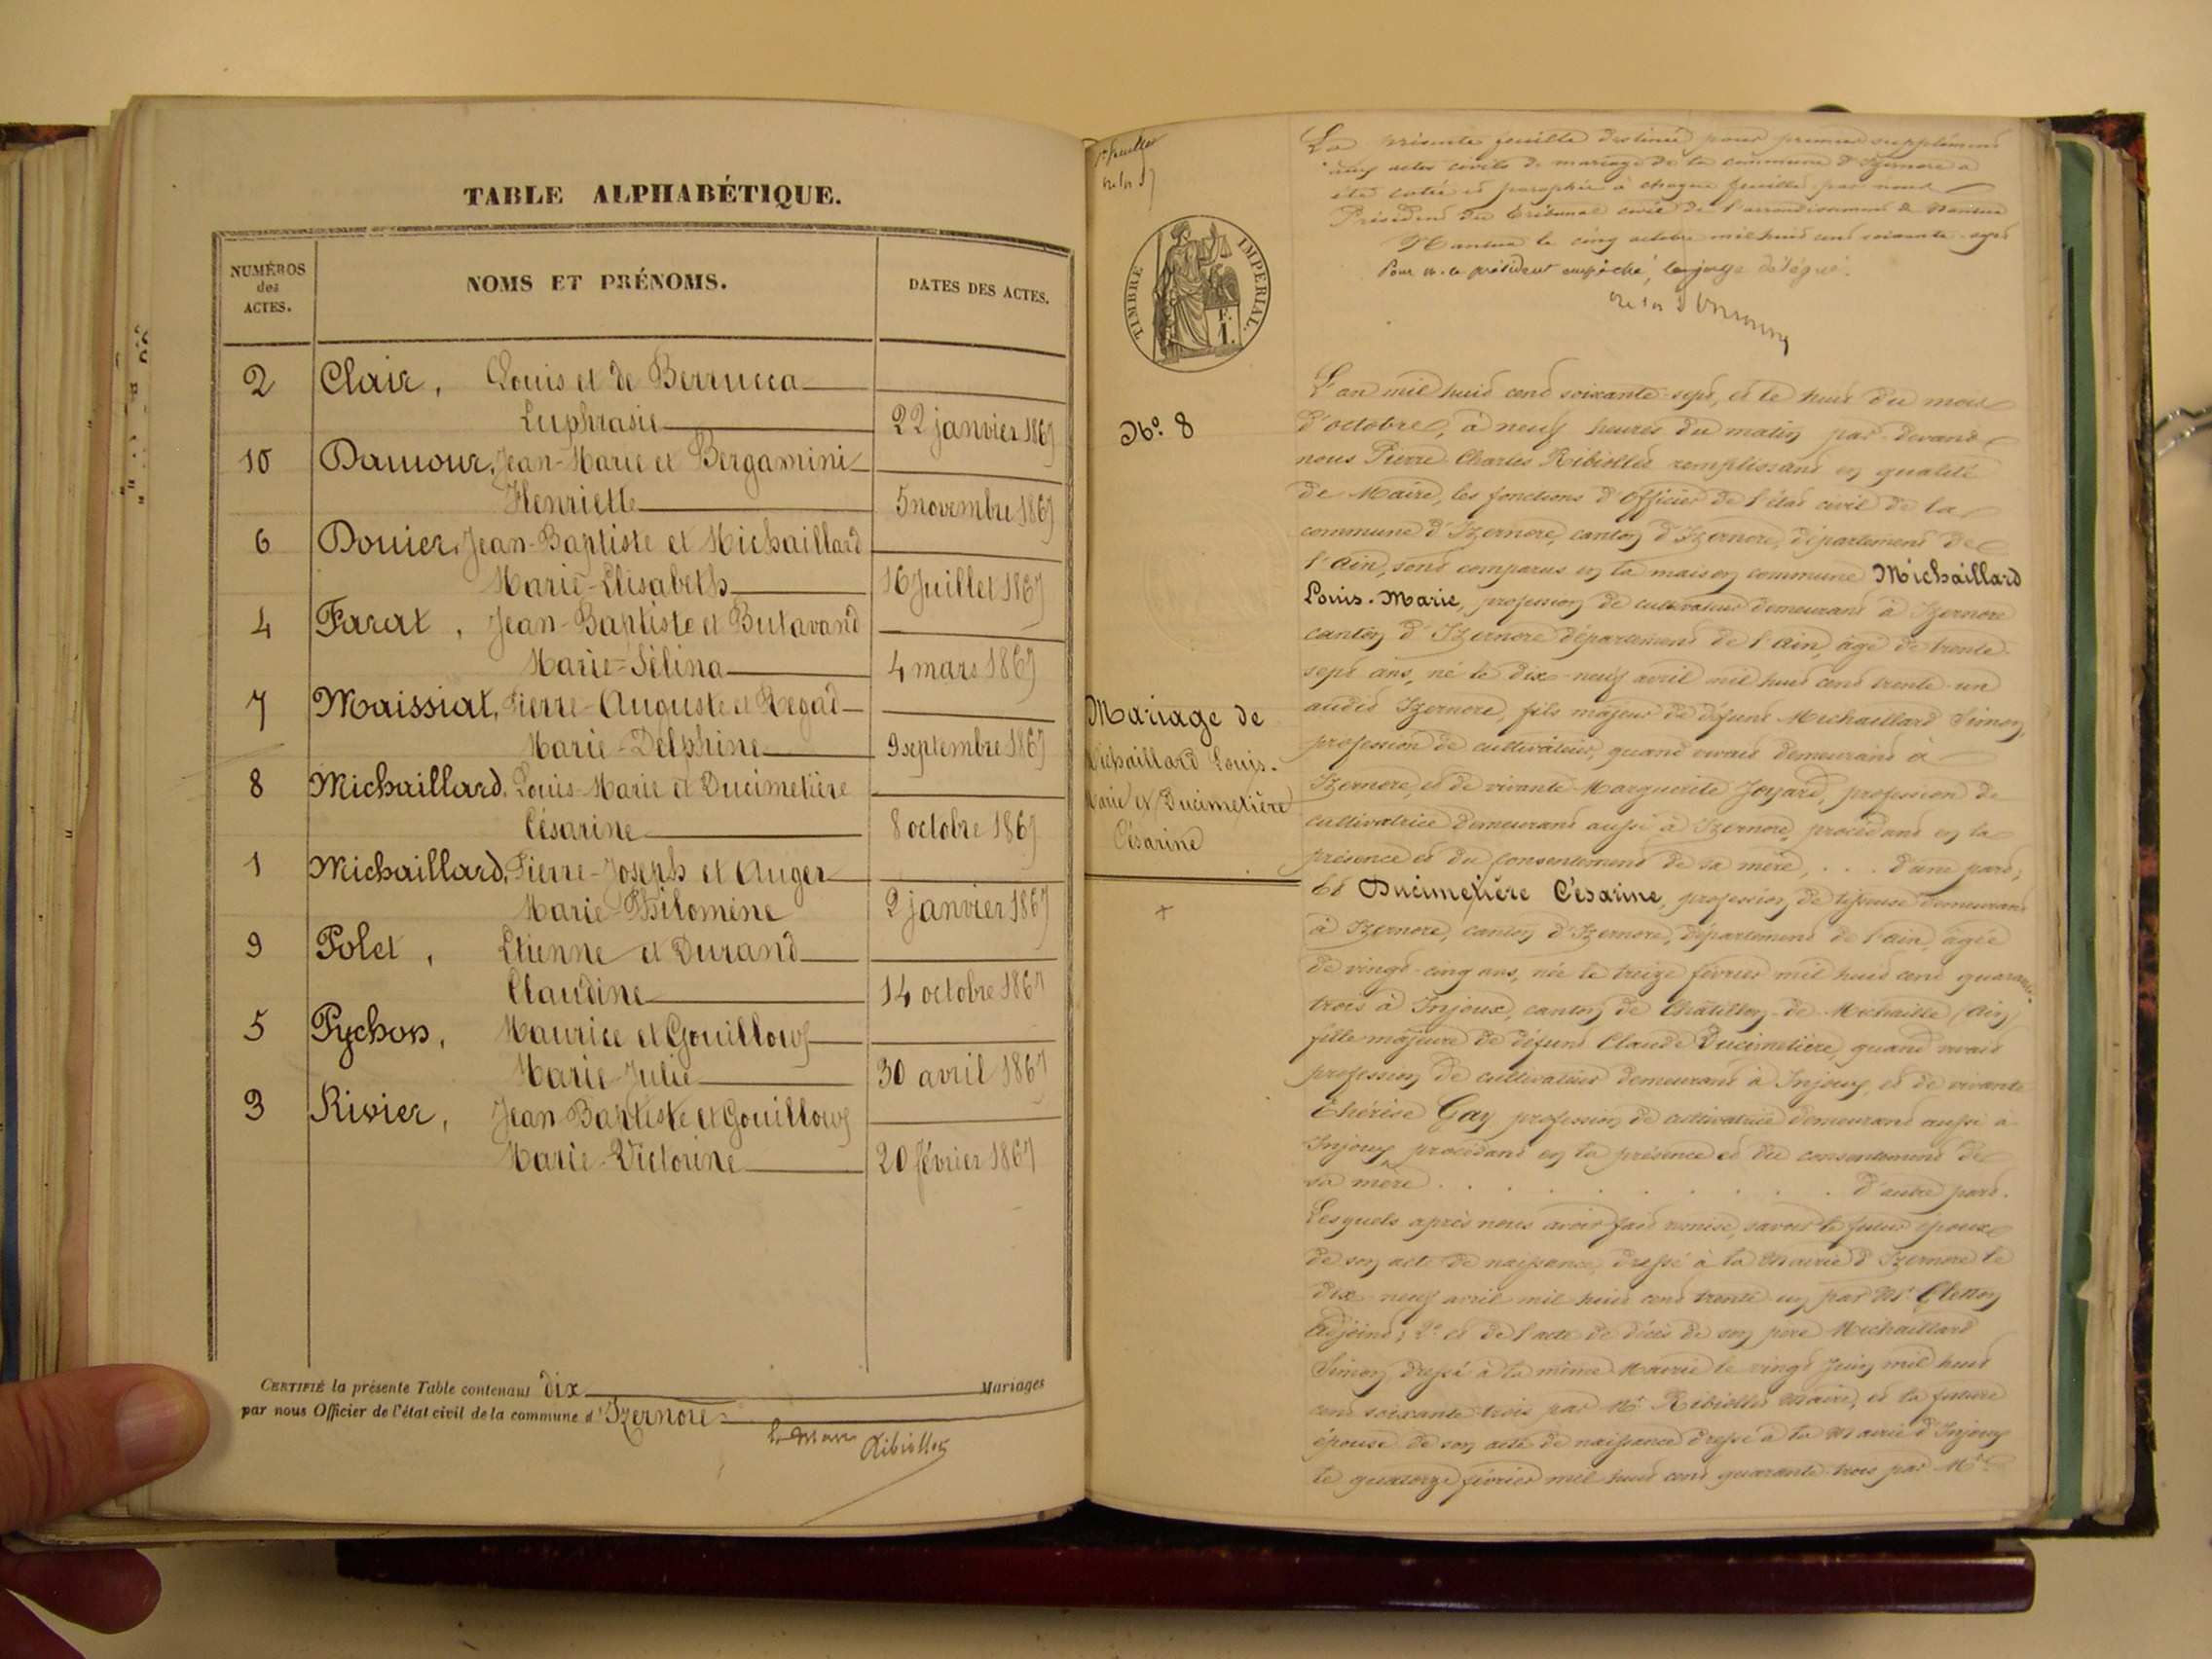 TABLE ALPHABÉTIQUE.
NUMÉROS
des
ACTES.
NOMS ET PRÉNOMS.
DATES DES ACTES.
2 Clair, Louis et de Berrucca
Euphrasie 22 janvier 1867
10 Damour, Jean-Marie et Bergamini
Henriette 5 novembre 1867
6 Douier, Jean-Baptiste et Michaillard
Marie-Elisabeth 16 Juillet 1867
4 Farat, Jean-Baptiste et Butavand
Marie-Sélina 4 mars 1867
7 Maissiat, Pierre-Auguste et Regad
Marie-Delphine 9 septembre 1867
8 Michaillard, Louis-Marie et Ducimetière
Césarine 8 octobre 1867
1 Michaillard, Pierre-Joseph et Auger
Marie-Philomène 2 janvier 1867
9 Polet, Etienne et Durand
Claudine 14 octobre 1867
5 Pychon, Maurice et Gouilloux
Marie-Julie 30 avril 1867
3 Rivier, Jean Baptiste et Gouilloux
Marie-Victorine 20 février 1867
CERTIFIÉ la présente Table contenant dix Mariages
par nous Officier de l'état civil de la commune d'Izernore
Le Maire
Ribiollet
TIMBRE IMPÉRIAL.
F.
1.
La présente feuille destinée pour premier supplément
aux actes civils de mariage de la commune d'Izernore a
été cotée et paraphée à chaque feuille par nous
Président du tribunal civil de l'arrondissement de Nantua
Nantua le cinq octobre mil huit cent soixante-sept
Pour M. le président empêché, le juge délégué.
No. 8
Mariage de
Michaillard Louis-
Marie et Ducimetière
Césarine
L'an mil huit cent soixante-sept, et le huit du mois
d'octobre, à neuf heures du matin par-devant
nous Pierre-Charles Ribiollet remplissant en qualité
de Maire, les fonctions d'Officier de l'état civil de la
commune d'Izernore, canton d'Izernore, département de
l'Ain, sont comparus en la maison commune Michaillard
Louis-Marie, profession de cultivateur demeurant à Izernore
canton d'Izernore département de l'Ain, âgé de trente-
sept ans, né le dix-neuf avril mil huit cent trente-un
audit Izernore, fils majeur de défunt Michaillard Simon,
profession de cultivateur, quand vivait demeurant à
Izernore, et de vivante Marguerite Joyard, profession de
cultivatrice demeurant aussi à Izernore, procédant en la
présence et du consentement de sa mère, . . . d'une part,
Et Ducimetière Césarine, profession de tisseuse demeurant
à Izernore, canton d'Izernore, département de l'Ain, âgée
de vingt-cinq ans, née le treize février mil huit cent quarante-
trois à Injoux, canton de Châtillon-de-Michaille (Ain)
fille majeure de défunt Claude Ducimetière, quand vivait
profession de cultivateur demeurant à Injoux, et de vivante
Thérèse Gay profession de cultivatrice demeurant aussi à
Injoux, procédant en la présence et du consentement de
sa mère . . . . . . . . . . d'autre part.
Lesquels après nous avoir fait remise, savoir le futur époux
de son acte de naissance, dressé à la Mairie d'Izernore le
dix-neuf avril mil huit cent trente un par Mr.
Adjoint; 2° et de l'acte de décès de son père Michaillard
Simon, dressé à la même Mairie le vingt Juin mil huit
cent soixante-trois par Mr. Ribiollet Maire, et la future
épouse de son acte de naissance dressé à la Mairie d'Injoux
le quatorze février mil huit cent quarante-trois par Mr.